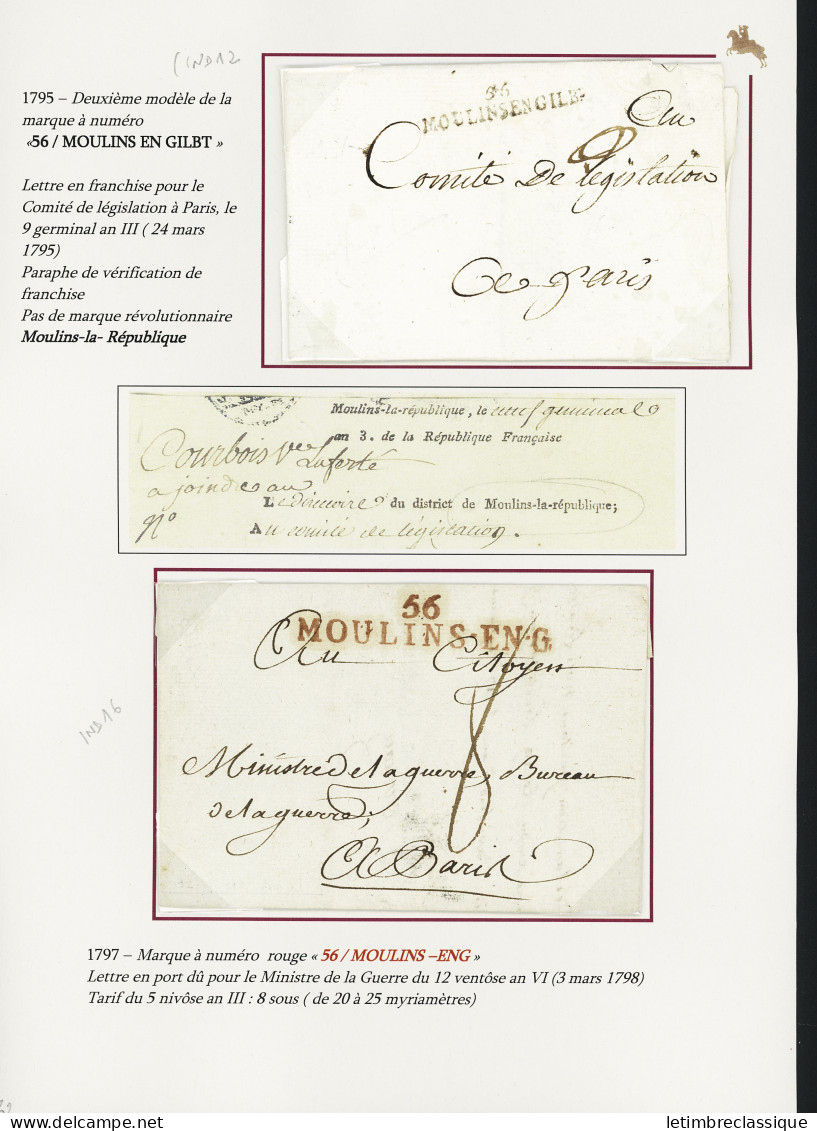 IND12
1795 – Deuxième modèle de la
marque à numéro
«56 / MOULINS EN GILBT »
Lettre en franchise pour le
Comité de législation à Paris, le
9 germinal an III ( 24 mars
1795)
Paraphe de vérification de
franchise
Pas de marque révolutionnaire
Moulins-la- République
56
MOULINSENGILBT
Au
Comité De législation
A paris
Moulins-la-république, le neuf germinal
an 3. de la République Française
Courbois Ve Laferté
a joindre au
No
Le directoire du district de Moulins-la-république;
Au comité de législation.
56
MOULINS-ENG
Au Citoyen
Ministre de la guerre, Bureau
de la guerre;
A Paris
8
IND16
1797 – Marque à numéro rouge « 56 / MOULINS –ENG »
Lettre en port dû pour le Ministre de la Guerre du 12 ventôse an VI (3 mars 1798)
Tarif du 5 nivôse an III : 8 sous ( de 20 à 25 myriamètres)
delcampe.net
letimbreclassique